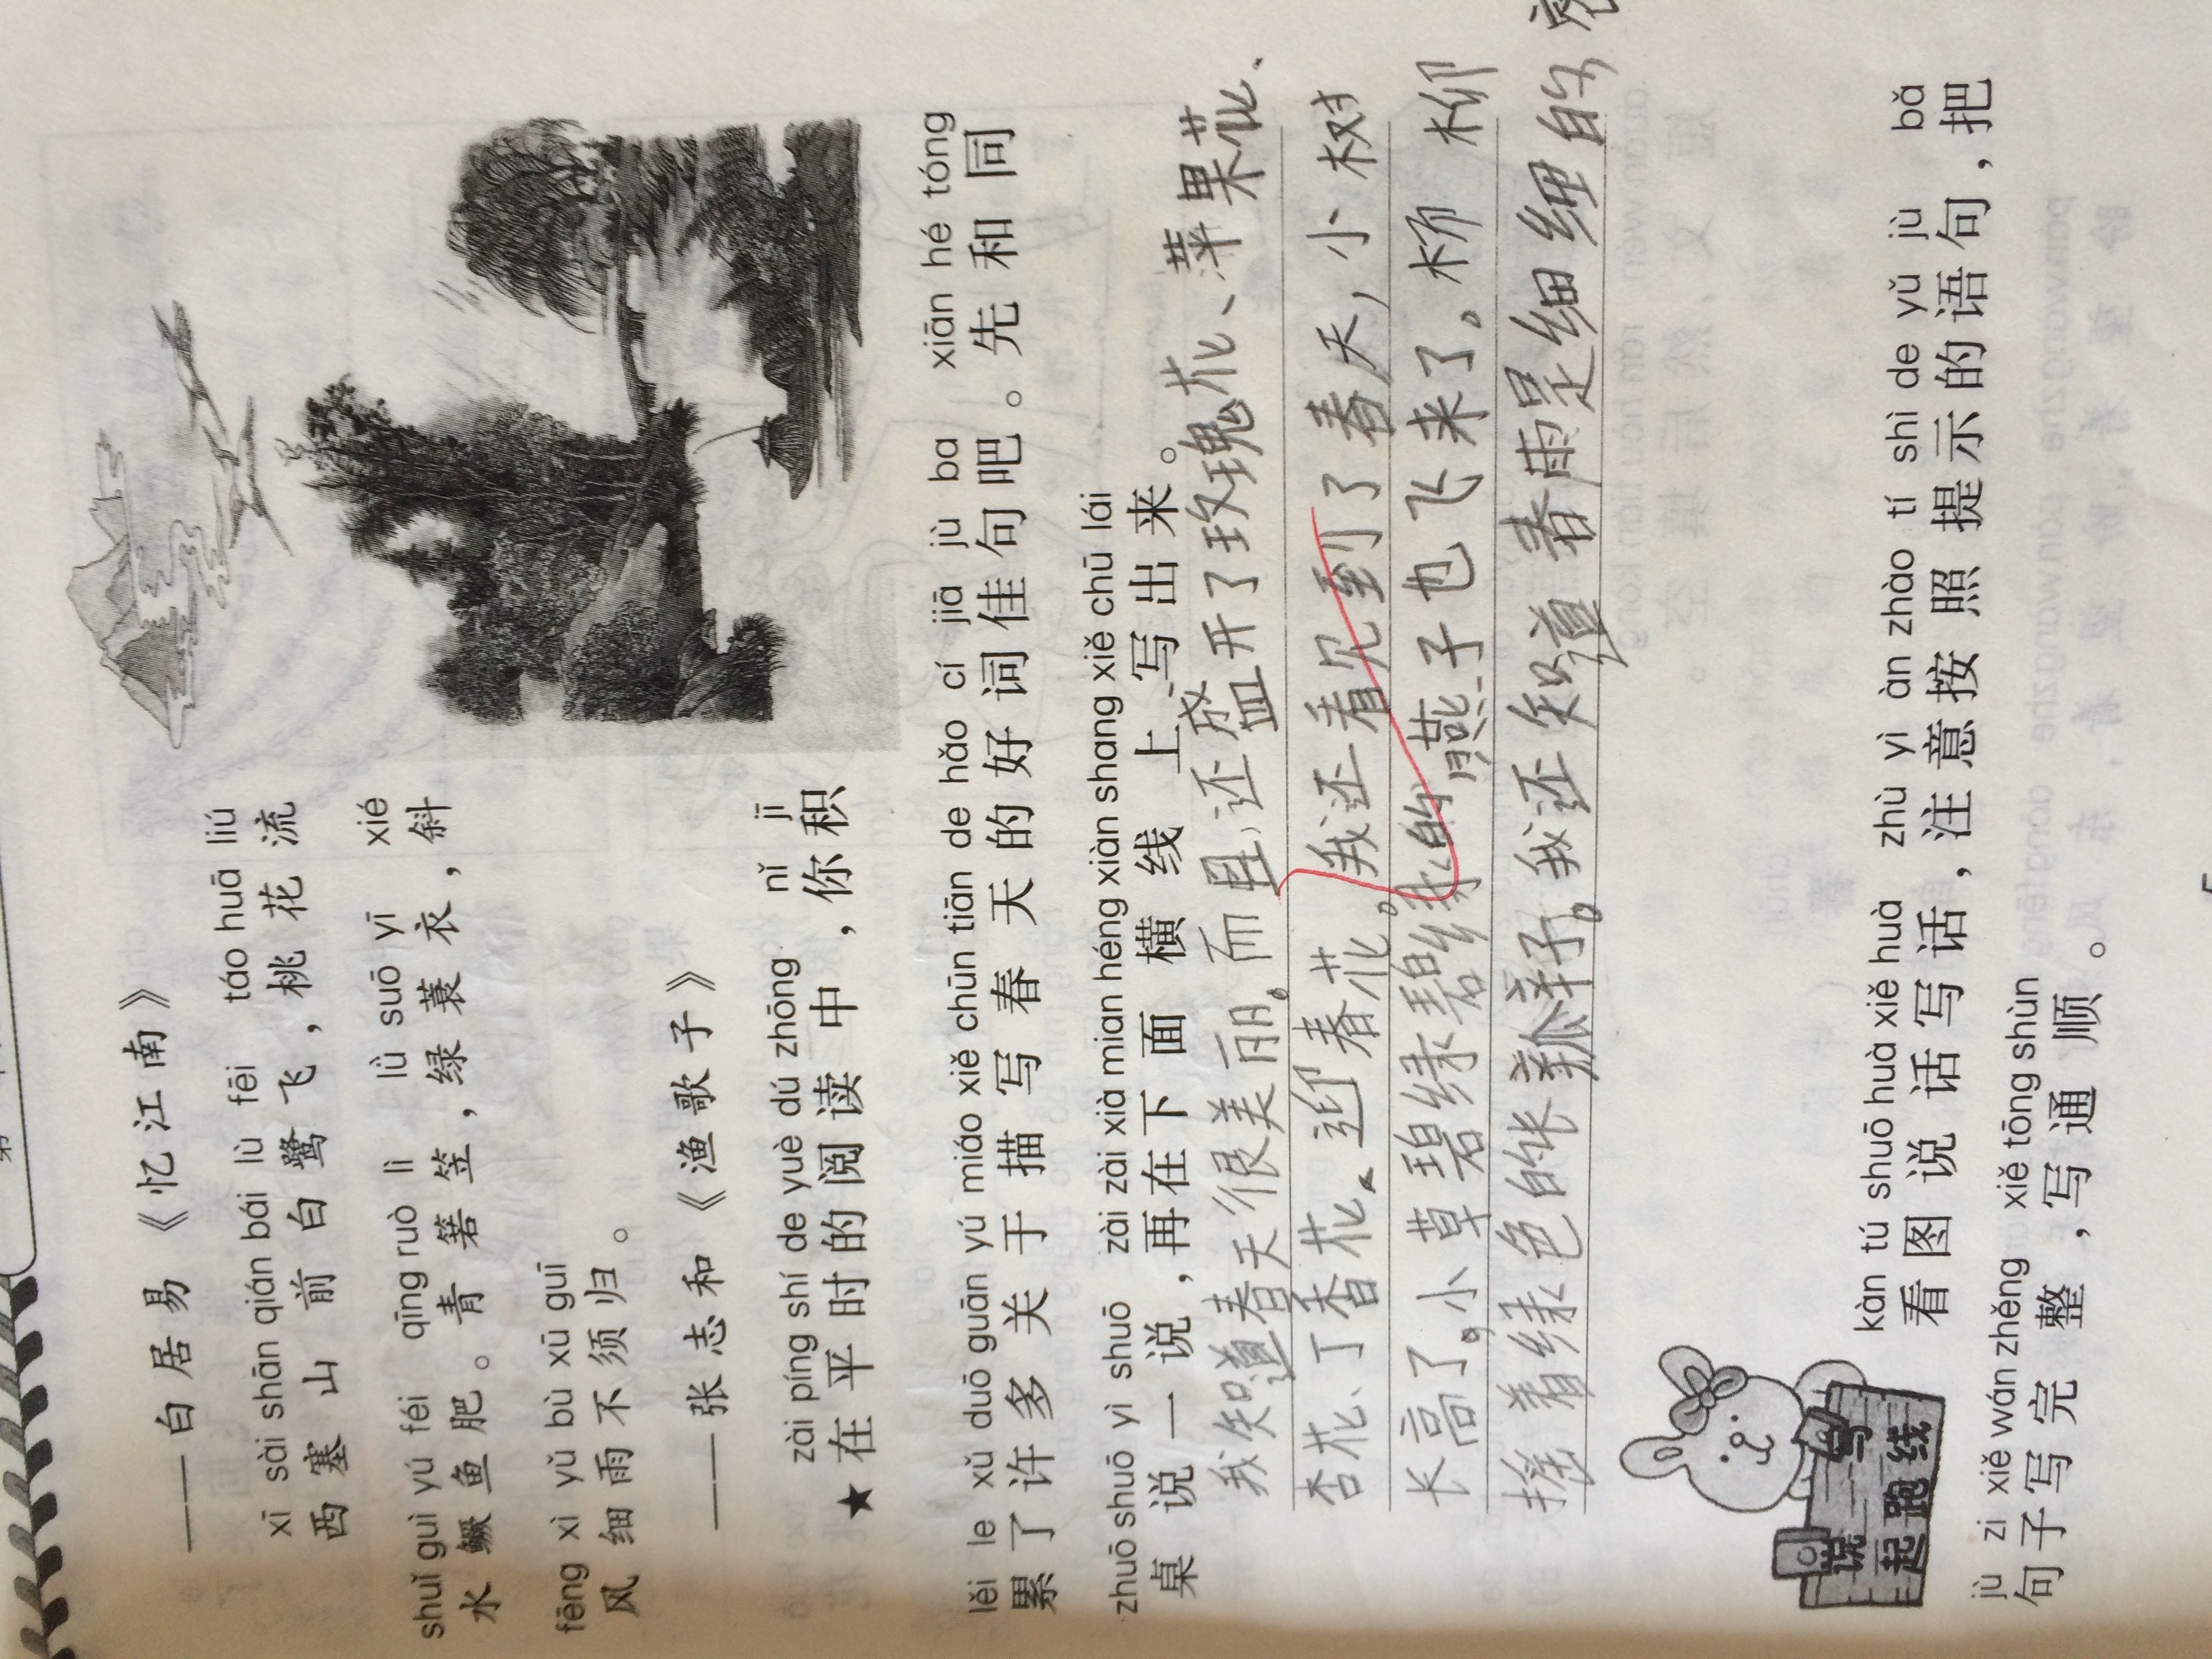 ——白居易《忆江南》
xī sài shān qián bái lù fēi táo huā liú
西塞山前白鹭飞,桃花流
shuǐ guì yú féi qīng ruò lì lǜ suō yī xié
水鳜鱼肥。青箬笠,绿蓑衣,斜
fēng xì yǔ bù xū guī
风细雨不须归。
——张志和《渔歌子》
zài píng shí de yuè dú zhōng nǐ jī
★在平时的阅读中,你积
lěi le xǔ duō guān yú miáo xiě chūn tiān de hǎo cí jiā jù ba xiān hé tóng
累了许多关于描写春天的好词佳句吧。先和同
zhuō shuō yì shuō zài zài xià mian héng xiàn shang xiě chū lái
桌说一说,再在下面横线上写出来。
我知道春天很美丽。而且,还盛开了玫瑰花、苹果花、
杏花、丁香花、迎春花。我还看见到了春天,小树
长高了,小草碧绿碧绿的燕子也飞来了。杨柳
摇着绿色的长辫子。我还知道春雨是细细的
kàn tú shuō huà xiě huà zhù yì àn zhào tí shì de yǔ jù bǎ
看图说话写话,注意按照提示的语句,把
jù zi xiě wán zhěng xiě tōng shùn
句子写完整,写通顺。
说写
起跑线